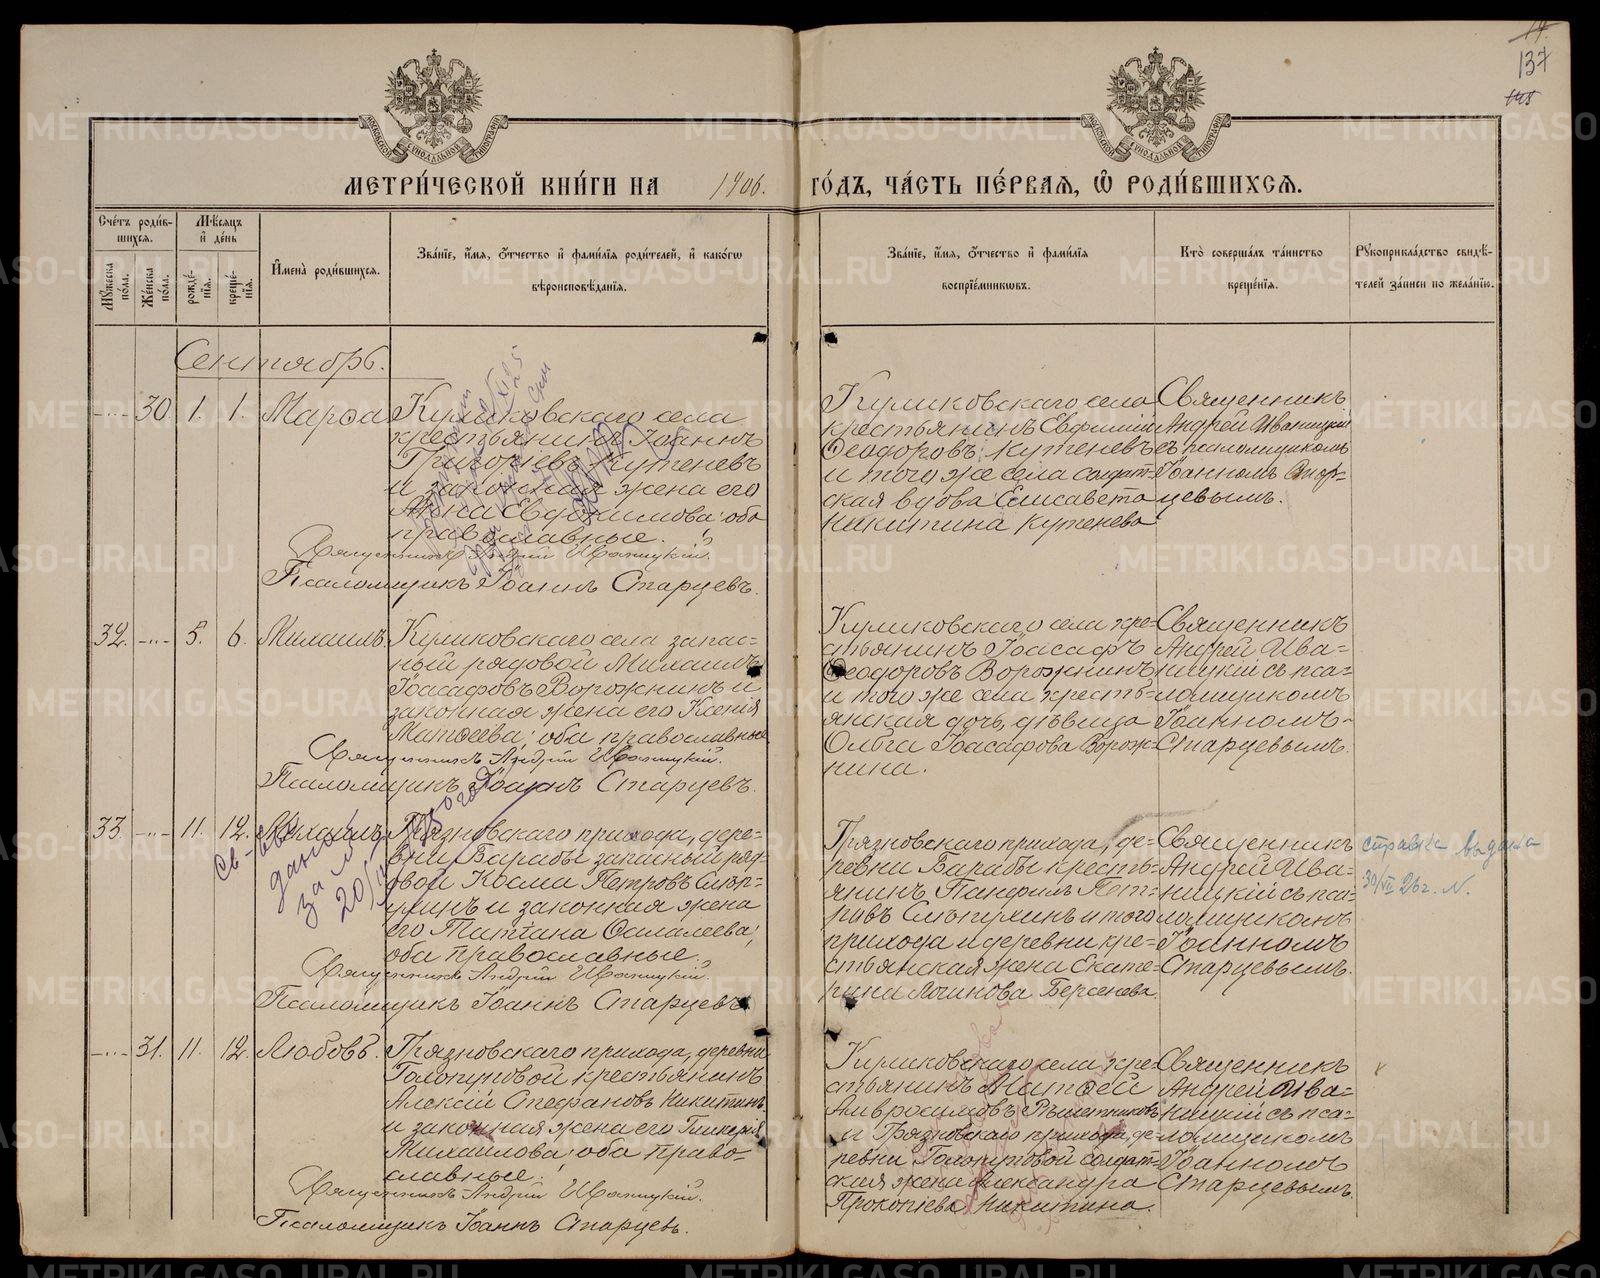 137
МЕТРИ́ЧЕСКОЙ КНИ́ГИ НА 1906. ГО́ДЪ, ЧА́СТЬ ПЕ́РВАѦ, Ѡ҆ РОДИ́ВШИХСѦ.
Сче́тъ роди́в-
шихсѧ.
Мꙋ́жеска по́ла.
Же́нска по́ла.
Мѣ́сѧцъ
и҆ де́нь
рожде́-
нїѧ.
креще́-
нїѧ.
И҆мена̀ роди́вшихсѧ.
Зва́нїе, и҆́мѧ, ѻ҆́тчество и҆ фами́лїѧ роди́телей, и҆ како́гѡ
вѣроисповѣ́данїѧ.
Зва́нїе, и҆́мѧ, ѻ҆́тчество и҆ фами́лїѧ
воспрїе́мникѡвъ.
Кто̀ соверша́лъ та́инство
креще́нїѧ.
Рꙋкоприкла́дство свидѣ́-
телей за́писи по жела́нїю.
Сентябрь.
30. 1. 1. Марѳа
Куликовскаго села
крестьянинъ Іоаннъ
Григоріевъ Кутеневъ
и законная жена его
Анна Евдокимова; оба
православные.
Священникъ Андрей Иваницкій.
Псаломщикъ Іоаннъ Старцевъ.
Куликовскаго села
крестьянинъ Евфимій
Ѳеодоровъ Кутеневъ
и того же села солдат-
ская вдова Елисавета
Никитина Кутенева
Священникъ
Андрей Иваницкій
съ псаломщикомъ
Іоанномъ Стар-
цевымъ.
32. 5. 6. Михаилъ.
Куликовскаго села запас-
ный рядовой Михаилъ
Іоасафовъ Ворожнинъ и
законная жена его Ксенія
Матѳеева; оба православные
Священникъ Андрей Иваницкій.
Псаломщикъ Іоаннъ Старцевъ.
Куликовскаго села кре-
стьянинъ Іоасафъ
Ѳеодоровъ Ворожнинъ
и того же села кресть-
янская дочь, дѣвица
Ольга Іоасафова Ворож-
нина.
Священникъ
Андрей Ива-
ницкій съ пса-
ломщикомъ
Іоанномъ
Старцевымъ.
33. 11. 12. Михаилъ
Св-во
дано
за №
20/
Грязновскаго прихода, дере-
вни Барабы запасный ряд-
овой Косма Петровъ
и законная жена
его Татіана
оба православные.
Священникъ Андрей Иваницкій.
Псаломщикъ Іоаннъ Старцевъ
Грязновскаго прихода, де-
ревни Барабы кресть-
янинъ Панфилъ Пет-
ровъ и того
прихода и деревни кре-
стьянская жена Екате-
рина Логинова Берсенева.
Священникъ
Андрей Ива-
ницкій съ пса-
ломщикомъ
Іоанномъ
Старцевымъ.
справка выдана
30/VII 26г. N.
31. 11. 12. Любовь.
Грязновскаго прихода, деревни
крестьянинъ
Алексій Стефановъ Никитинъ
и законная жена его Гликерія
Михаилова; оба право-
славные.
Священникъ Андрей Иваницкій.
Псаломщикъ Іоаннъ Старцевъ.
Куликовскаго села кре-
стьянинъ Матѳей
Амвросимовъ Рѣшетниковъ
и Грязновскаго прихода, де-
ревни солдат-
ская жена Александра
Прокопіева Никитина.
Священникъ
Андрей Ива-
ницкій съ пса-
ломщикомъ
Іоанномъ
Старцевымъ.
METRIKI.GASO-URAL.RU